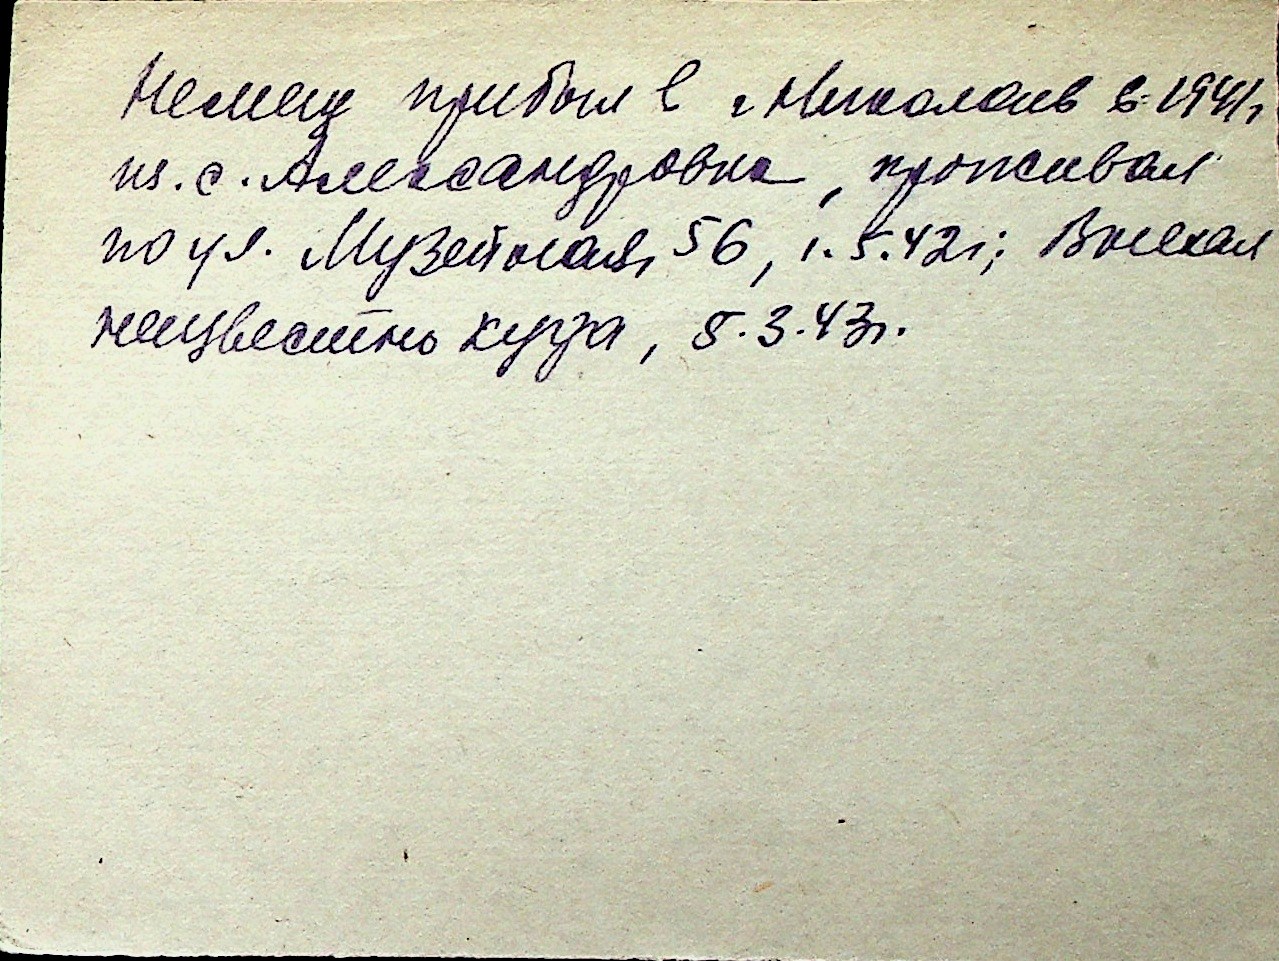 Немец прибыл в г. Николаев в 1941г.
из с. Александровка, проживал
по ул. Музейная, 56, 1.5.42г; Выехал
неизвестно куда, 5.3.43г.